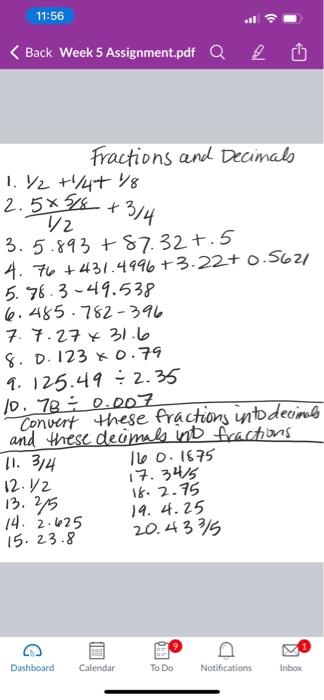 11:56
Back Week 5 Assignment.pdf
Fractions and Decimals
1. 1/2 + 1/4 + 1/8
2. 5 x 5/8 + 3/4
1/2
3. 5.893 + 87.32 + .5
4. 76 + 431.4996 + 3.22 + 0.5621
5. 78.3 - 49.538
6. 485.782 - 396
7. 7.27 x 31.6
8. 0.123 x 0.79
9. 125.49 ÷ 2.35
10. 78 ÷ 0.007
Convert these fractions into decimals
and these decimals into fractions
11. 3/4
12. 1/2
13. 2/5
14. 2.625
15. 23.8
16 0.1875
17. 3 4/5
18. 2.75
19. 4.25
20. 43 3/5
9
1
Dashboard Calendar To Do Notifications Inbox